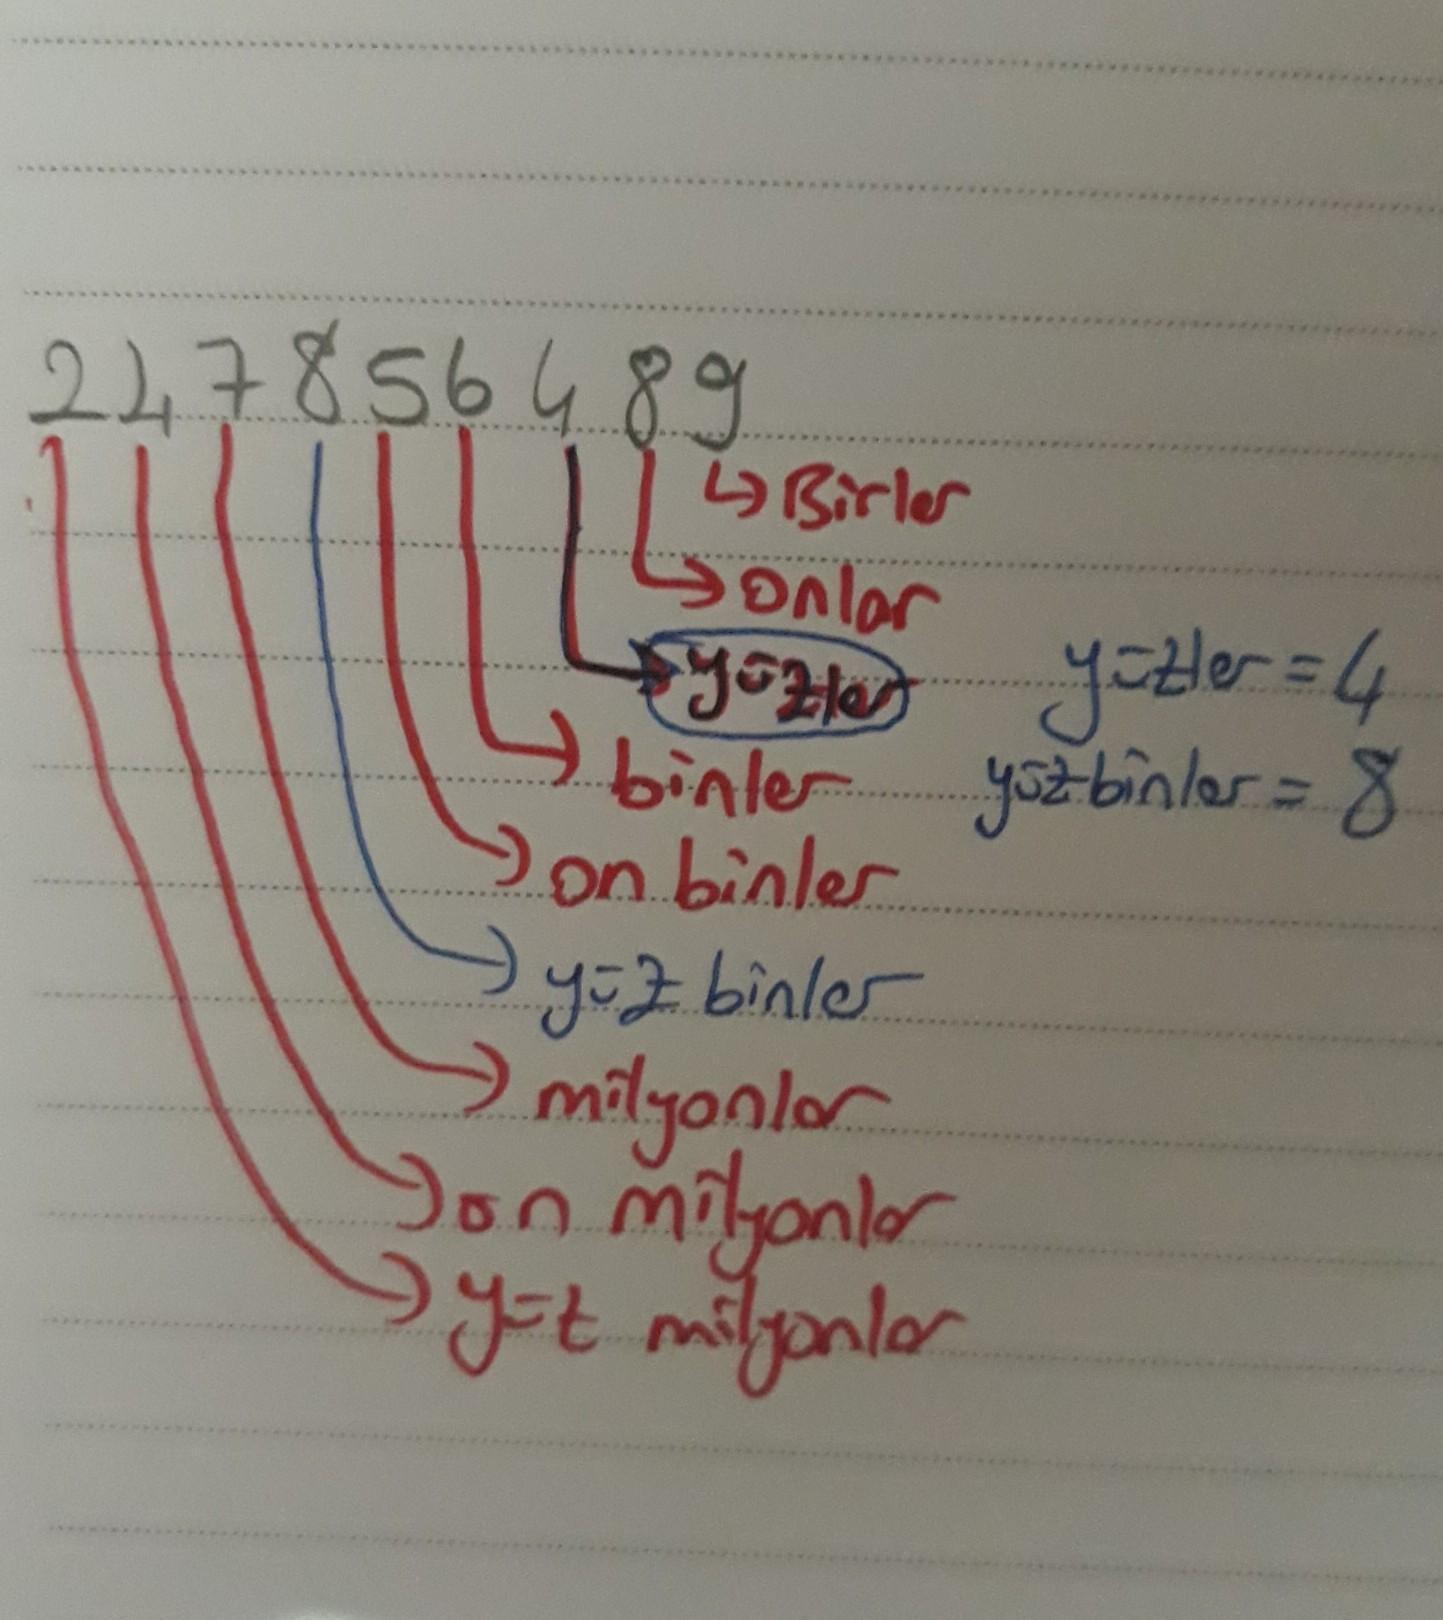 247856489
Birler
onlar
yüzler yüzler = 4
binler yüzbinler = 8
on binler
yüz binler
milyonlar
on milyonlar
yüz milyonlar